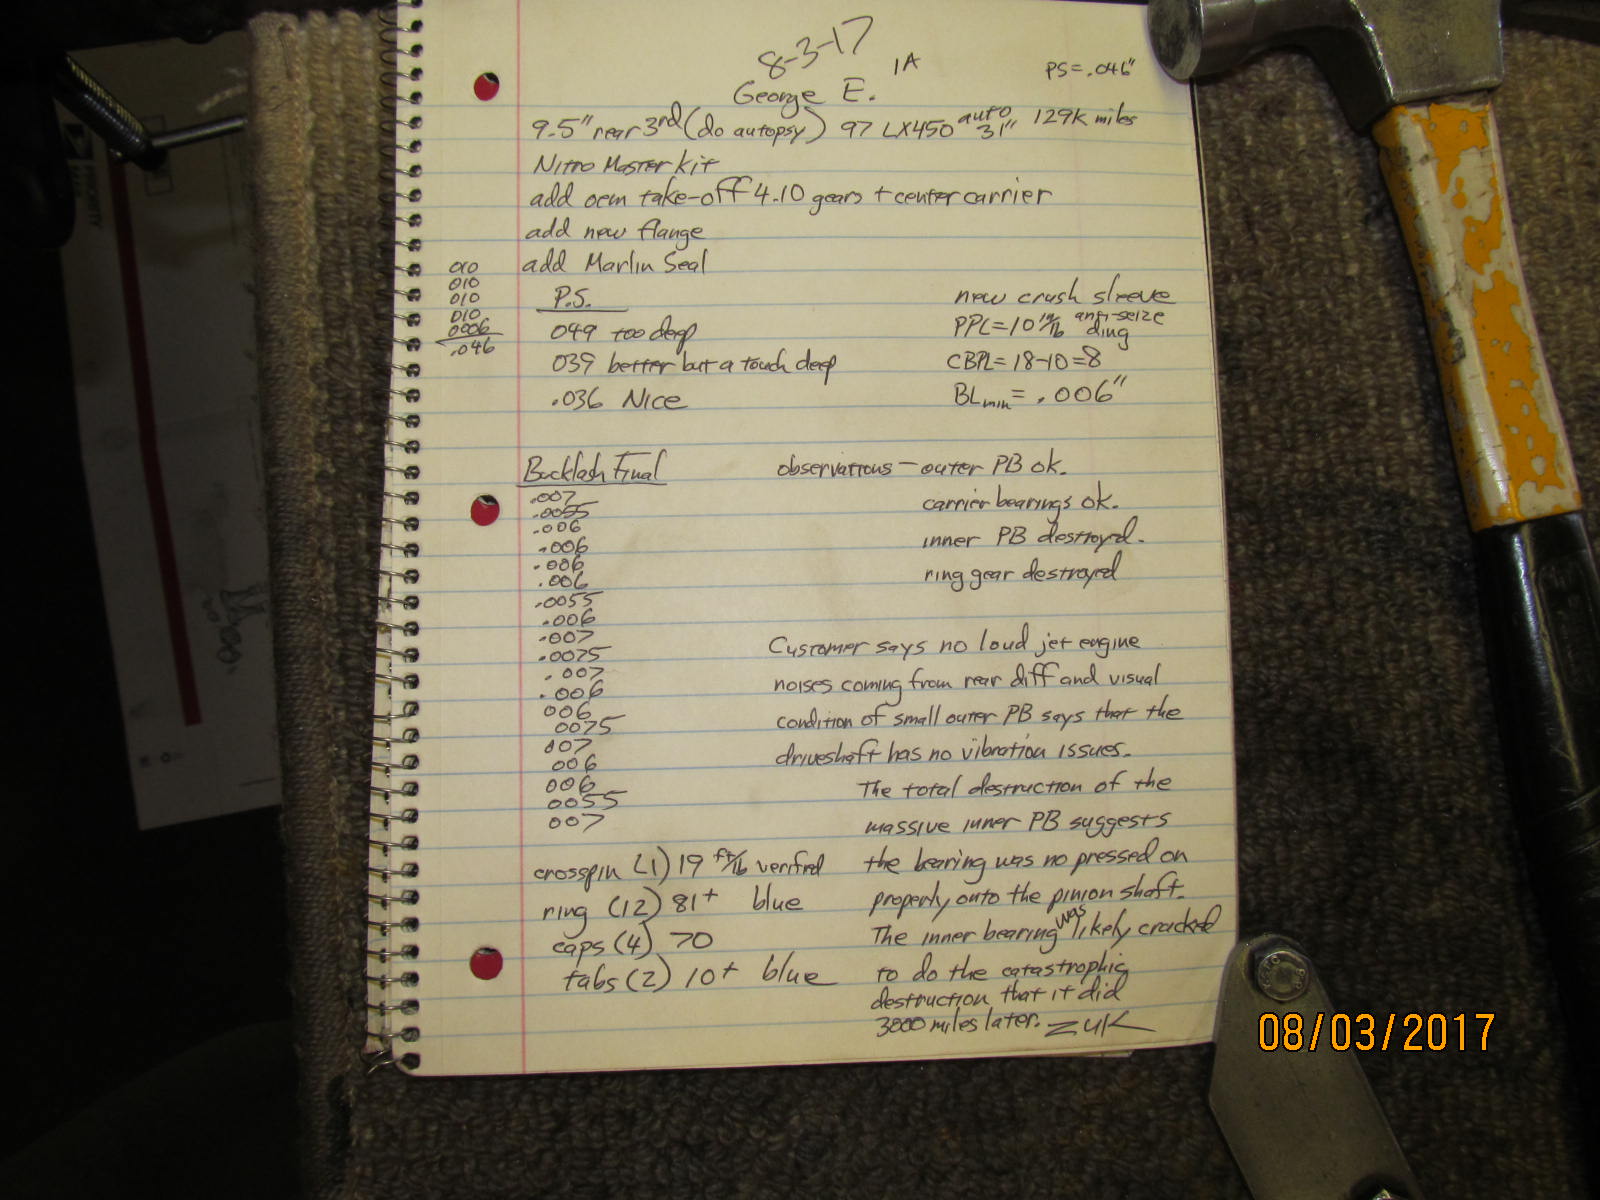 8-3-17
1A
PS = .046"
George E.
9.5" rear 3rd (do autopsy) 97 LX450 auto 31" 129K miles
Nitro Master kit
add oem take-off 4.10 gears + center carrier
add new flange
add Marlin Seal
010
010
010
010
0006
.046
P.S.
049 too deep
039 better but a touch deep
.036 Nice
new crush sleeve
PPL = 10 in/lb anti-seize ding
CBPL = 18-10 = 8
BLmin = .006"
Backlash Final
.007
.0055
.006
.006
.006
.006
.0055
.006
.007
.0075
.007
.006
006
0075
007
006
006
0055
007
observations - outer PB ok.
carrier bearings ok.
inner PB destroyed.
ring gear destroyed
Customer says no loud jet engine
noises coming from rear diff and visual
condition of small outer PB says that the
driveshaft has no vibration issues.
The total destruction of the
massive inner PB suggests
the bearing was no pressed on
properly onto the pinion shaft.
The inner bearing was likely cracked
to do the catastrophic
destruction that it did
3000 miles later. ZUK
crosspin (1) 19 ft/lb verified
ring (12) 81+ blue
caps (4) 70
tabs (2) 10+ blue
08/03/2017